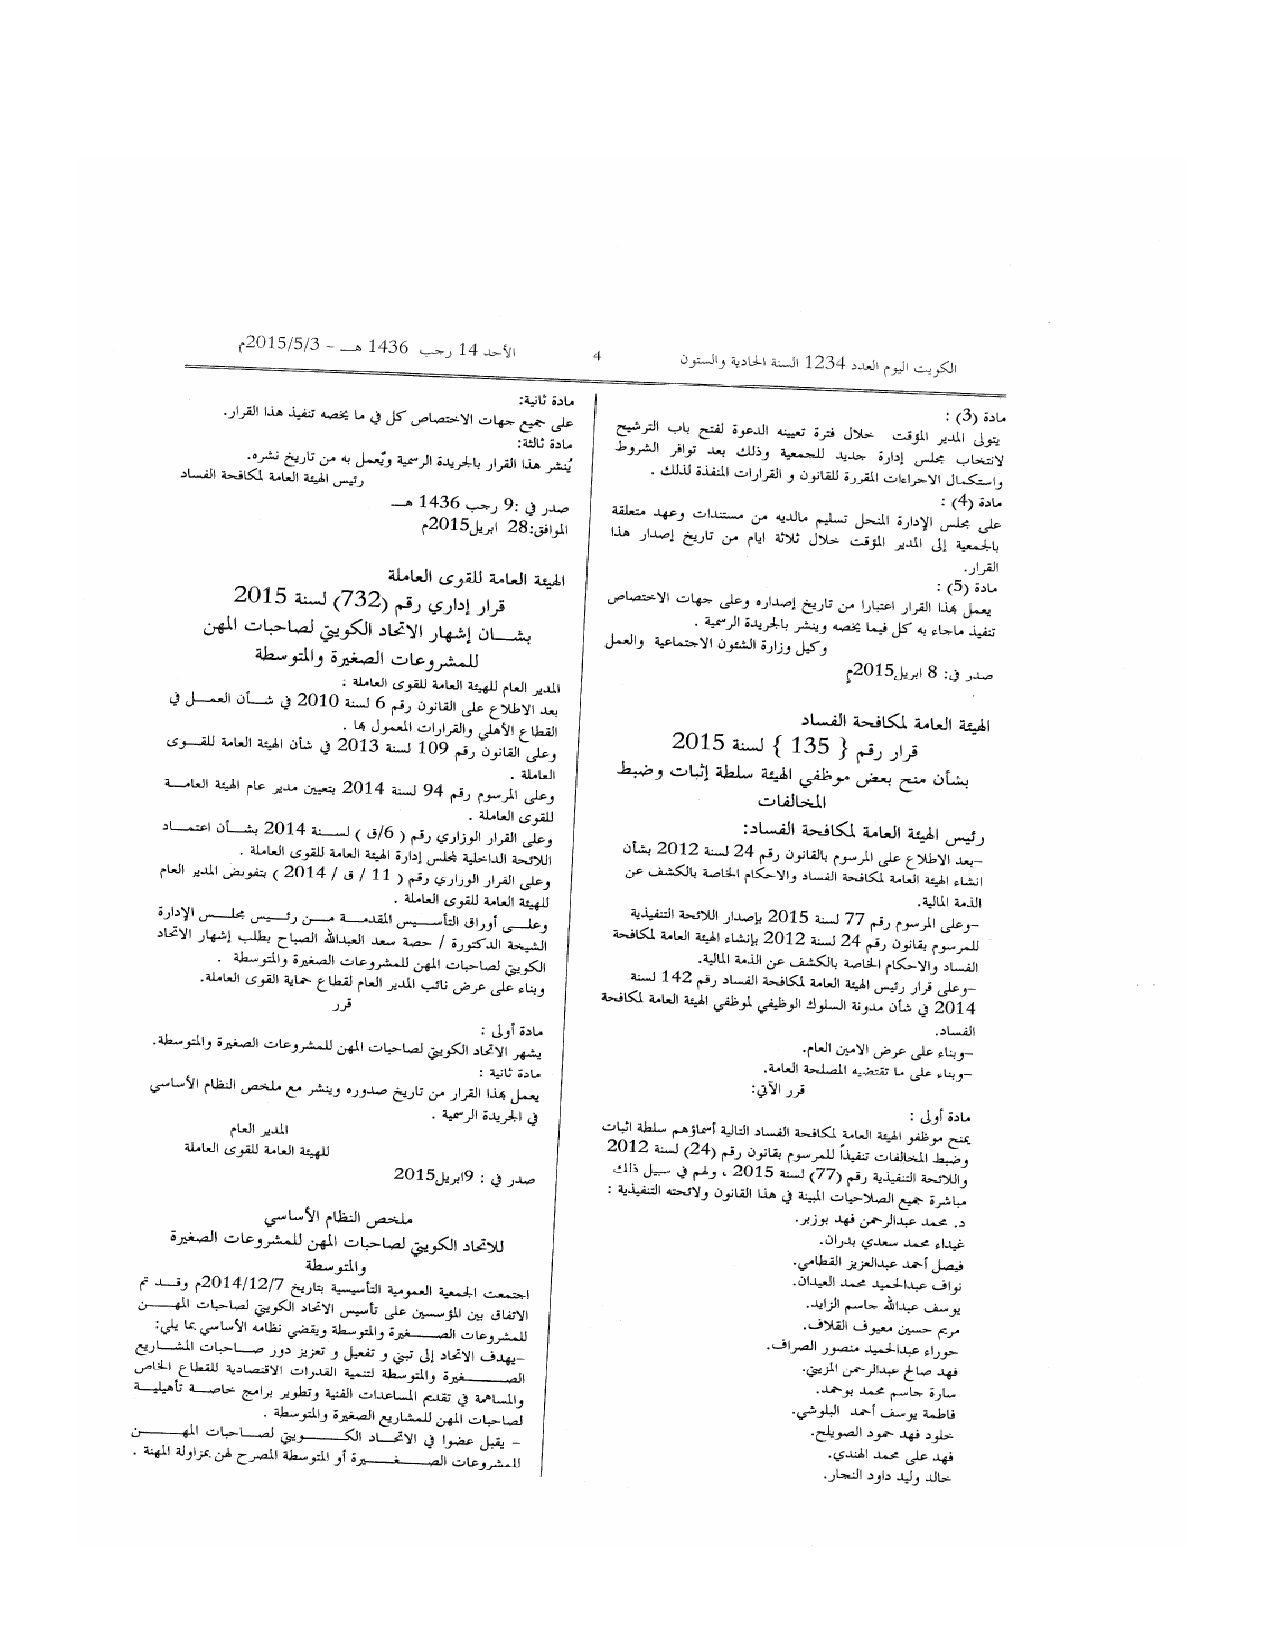 الكويت اليوم العدد 1234 السنة الحادية والستون
4
الأحد 14 رجب 1436 هـ - 2015/5/3م
مادة (3) :
يتولى المدير المؤقت خلال فترة تعيينه الدعوة لفتح باب الترشيح
لانتخاب مجلس إدارة جديد للجمعية وذلك بعد توافر الشروط
واستكمال الاجراءات المقررة للقانون و القرارات المنفذة لذلك .
مادة (4) :
على مجلس الإدارة المنحل تسليم مالديه من مستندات وعهد متعلقة
بالجمعية إلى المدير المؤقت خلال ثلاثة ايام من تاريخ إصدار هذا
القرار.
مادة (5) :
يعمل بهذا القرار اعتبارا من تاريخ إصداره وعلى جهات الاختصاص
تنفيذ ماجاء به كل فيما يخصه وينشر بالجريدة الرسمية .
وكيل وزارة الشئون الاجتماعية والعمل
صدر في: 8 ابريل2015م
الهيئة العامة لمكافحة الفساد
قرار رقم { 135 } لسنة 2015
بشأن منح بعض موظفي الهيئة سلطة إثبات وضبط
المخالفات
رئيس الهيئة العامة لمكافحة الفساد:
–بعد الاطلاع على المرسوم بالقانون رقم 24 لسنة 2012 بشأن
انشاء الهيئة العامة لمكافحة الفساد والاحكام الخاصة بالكشف عن
الذمة المالية.
–وعلى المرسوم رقم 77 لسنة 2015 بإصدار اللائحة التنفيذية
للمرسوم بقانون رقم 24 لسنة 2012 بإنشاء الهيئة العامة لمكافحة
الفساد والاحكام الخاصة بالكشف عن الذمة المالية.
–وعلى قرار رئيس الهيئة العامة لمكافحة الفساد رقم 142 لسنة
2014 في شأن مدونة السلوك الوظيفي لموظفي الهيئة العامة لمكافحة
الفساد.
–وبناء على عرض الامين العام.
–وبناء على ما تقتضيه المصلحة العامة.
قرر الآتي:
مادة أولى :
يمنح موظفو الهيئة العامة لمكافحة الفساد التالية أسماؤهم سلطة اثبات
وضبط المخالفات تنفيذاً للمرسوم بقانون رقم (24) لسنة 2012
واللائحة التنفيذية رقم (77) لسنة 2015 ، ولهم في سبيل ذلك
مباشرة جميع الصلاحيات المبينة في هذا القانون ولائحته التنفيذية :
د. محمد عبدالرحمن فهد بوزبر.
غيداء محمد سعدي بدران.
فيصل أحمد عبدالعزيز القطامي.
نواف عبدالحميد محمد العيدان.
يوسف عبدالله جاسم الزايد.
مريم حسين معيوف القلاف.
حوراء عبدالحميد منصور الصراف.
فهد صالح عبدالرحمن المزيني.
سارة جاسم محمد بوحمد.
فاطمة يوسف أحمد البلوشي.
خلود فهد حمود الصويلح.
فهد على محمد الهندي.
خالد وليد داود النجار.
مادة ثانية:
على جميع جهات الاختصاص كل في ما يخصه تنفيذ هذا القرار.
مادة ثالثة:
يُنشر هذا القرار بالجريدة الرسمية ويُعمل به من تاريخ نشره.
رئيس الهيئة العامة لمكافحة الفساد
صدر في :9 رجب 1436 هـ
الموافق:28 ابريل2015م
الهيئة العامة للقوى العاملة
قرار إداري رقم (732) لسنة 2015
بشـــان إشهار الاتحاد الكويتي لصاحبات المهن
للمشروعات الصغيرة والمتوسطة
المدير العام للهيئة العامة للقوى العاملة :
بعد الاطلاع على القانون رقم 6 لسنة 2010 في شـــأن العمـــل في
القطاع الأهلي والقرارات المعمول بها .
وعلى القانون رقم 109 لسنة 2013 في شأن الهيئة العامة للقـــوى
العاملة .
وعلى المرسوم رقم 94 لسنة 2014 بتعيين مدير عام الهيئة العامـــة
للقوى العاملة .
وعلى القرار الوزاري رقم ( 6/ق ) لســـنة 2014 بشـــأن اعتمـــاد
اللائحة الداخلية لمجلس إدارة الهيئة العامة للقوى العاملة .
وعلى القرار الوزاري رقم ( 11 / ق / 2014 ) بتفويض المدير العام
للهيئة العامة للقوى العاملة .
وعلـــى أوراق التأســـيس المقدمـــة مـــن رئـــيس مجلـــس الإدارة
الشيخة الدكتورة / حصة سعد العبدالله الصباح بطلب إشهار الاتحاد
الكويتي لصاحبات المهن للمشروعات الصغيرة والمتوسطة .
وبناء على عرض نائب المدير العام لقطاع حماية القوى العاملة.
قرر
مادة أولى :
يشهر الاتحاد الكويتي لصاحبات المهن للمشروعات الصغيرة والمتوسطة.
مادة ثانية :
يعمل بهذا القرار من تاريخ صدوره وينشر مع ملخص النظام الأساسي
في الجريدة الرسمية .
المدير العام
للهيئة العامة للقوى العاملة
صدر في : 9ابريل2015
ملخص النظام الأساسي
للاتحاد الكويتي لصاحبات المهن للمشروعات الصغيرة
والمتوسطة
اجتمعت الجمعية العمومية التأسيسية بتاريخ 2014/12/7م وقـــد تم
الاتفاق بين المؤسسين على تأسيس الاتحاد الكويتي لصاحبات المهـــن
للمشروعات الصـــغيرة والمتوسطة ويقضي نظامه الأساسي بما يلي:
–يهدف الاتحاد إلى تبني و تفعيل و تعزيز دور صـــاحبات المشـــاريع
الصـــغيرة والمتوسطة لتنمية القدرات الاقتصادية للقطاع الخاص
والمساهمة في تقديم المساعدات الفنية وتطوير برامج خاصـــة تأهيليـــة
لصاحبات المهن للمشاريع الصغيرة والمتوسطة .
– يقبل عضوا في الاتحـــاد الكـــويتي لصـــاحبات المهـــن
للمشروعات الصـــغـــيرة أو المتوسطة المصرح لهن بمزاولة المهنة .